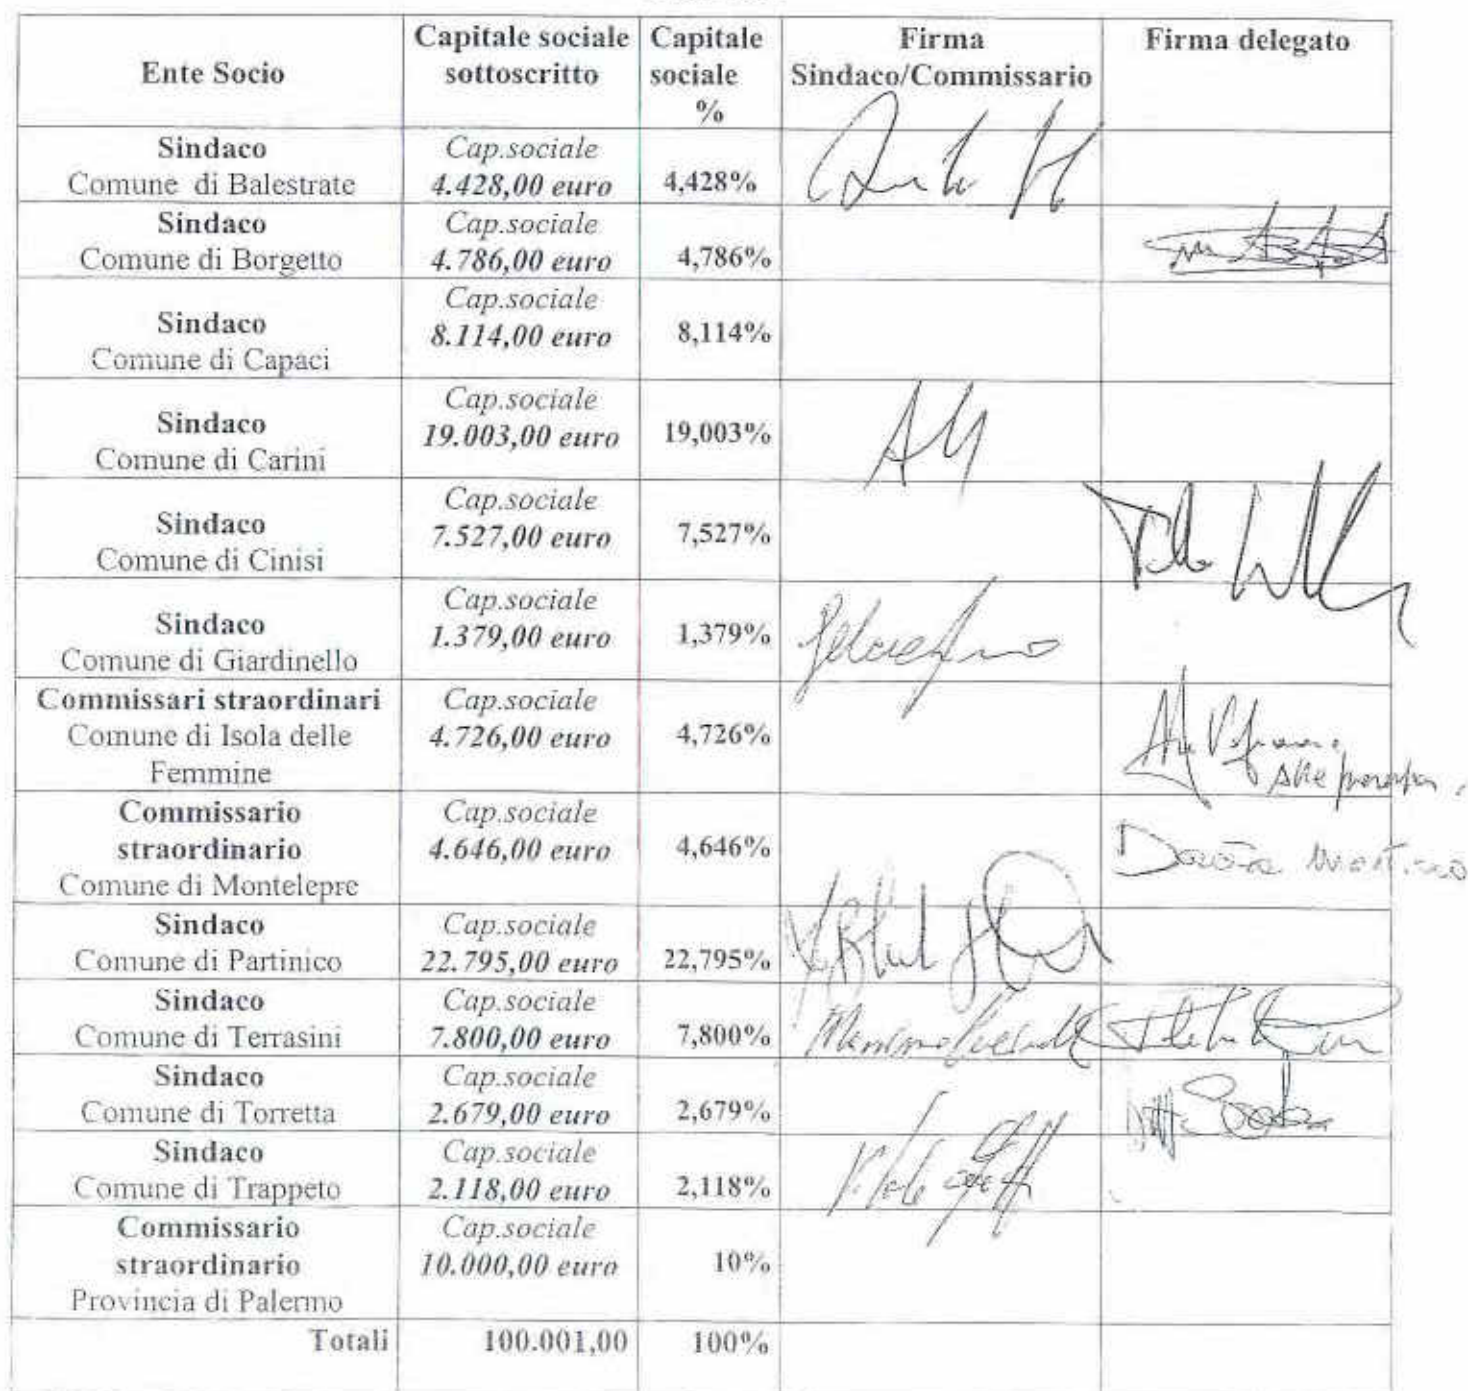 Ente Socio
Capitale sociale
sottoscritto
Capitale
sociale
%
Firma
Sindaco/Commissario
Firma delegato
Sindaco
Comune di Balestrate
Cap.sociale
4.428,00 euro
4,428%
Sindaco
Comune di Borgetto
Cap.sociale
4.786,00 euro
4,786%
Sindaco
Comune di Capaci
Cap.sociale
8.114,00 euro
8,114%
Sindaco
Comune di Carini
Cap.sociale
19.003,00 euro
19,003%
Sindaco
Comune di Cinisi
Cap.sociale
7.527,00 euro
7,527%
Sindaco
Comune di Giardinello
Cap.sociale
1.379,00 euro
1,379%
Commissari straordinari
Comune di Isola delle
Femmine
Cap.sociale
4.726,00 euro
4,726%
Commissario
straordinario
Comune di Montelepre
Cap.sociale
4.646,00 euro
4,646%
Sindaco
Comune di Partinico
Cap.sociale
22.795,00 euro
22,795%
Sindaco
Comune di Terrasini
Cap.sociale
7.800,00 euro
7,800%
Sindaco
Comune di Torretta
Cap.sociale
2.679,00 euro
2,679%
Sindaco
Comune di Trappeto
Cap.sociale
2.118,00 euro
2,118%
Commissario
straordinario
Provincia di Palermo
Cap.sociale
10.000,00 euro
10%
Totali
100.001,00
100%